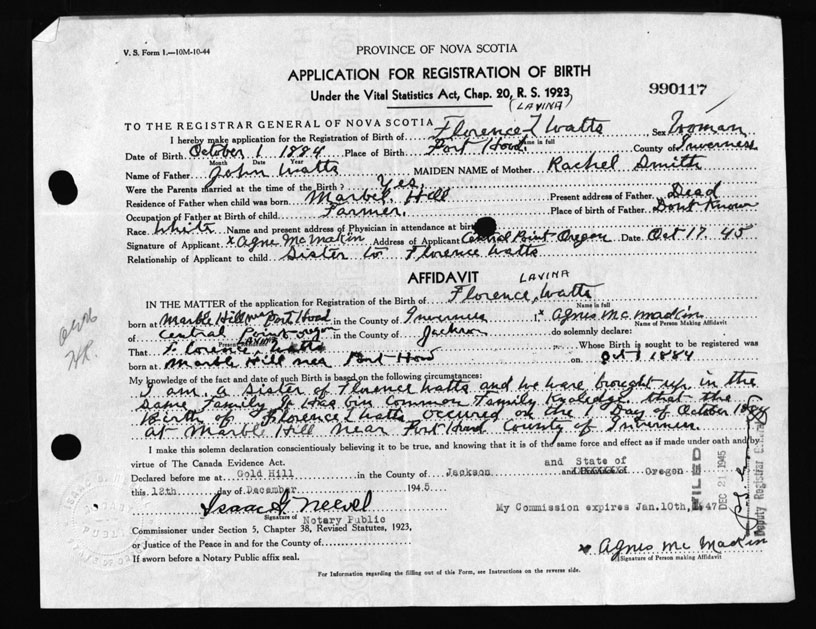 V. S. Form 1.—10M-10-44
PROVINCE OF NOVA SCOTIA
APPLICATION FOR REGISTRATION OF BIRTH
990117
Under the Vital Statistics Act, Chap. 20, R. S. 1923
(LAVINA)
TO THE REGISTRAR GENERAL OF NOVA SCOTIA
I hereby make application for the Registration of Birth of Florence L Watts Sex Woman
Name in full
Date of Birth October 1 1884 Place of Birth Port Hood County of Inverness
Month Date Year
Name of Father John Watts MAIDEN NAME of Mother Rachel Smith
Were the Parents married at the time of the Birth? Yes
Residence of Father when child was born Marbel Hill Present address of Father Dead
Occupation of Father at Birth of child Farmer. Place of birth of Father Dont Know
Race White Name and present address of Physician in attendance at
Signature of Applicant x Agnes McMakin Address of Applicant Central Point Oregon Date Oct 17. 45
Relationship of Applicant to child Sister to Florence Watts
AFFIDAVIT LAVINA
IN THE MATTER of the application for Registration of the Birth of Florence, Watts
Name in full
born at Marble Hill near Port Hood in the County of Inverness I, x Agnes Mc. Mackin
Name of Person Making Affidavit
of Central Point oregon in the County of Jackson do solemnly declare:
LAVINA
That Florence, Watts Whose Birth is sought to be registered was
born at Marble Hill near Port Hood on Oct 1 1884
My knowledge of the fact and date of such Birth is based on the following circumstances:
I am, a Sister of Florence Watts and we have brought up in the
same Family It Has bin Common Family that the
Birth of Florence Watts occured on the 1 Day of October 1884
at Marble Hill near Port Hood County of Inverness
I make this solemn declaration conscientiously believing it to be true, and knowing that it is of the same force and effect as if made under oath and by
virtue of The Canada Evidence Act.
and State of
Declared before me at Gold Hill in the County of Jackson Oregon
this 12th day of December 1945
My Commission expires Jan.10th, 1947
FILED
DEC 21 1945
Deputy Registrar
Signature of Notary Public
Commissioner under Section 5, Chapter 38, Revised Statutes, 1923,
or Justice of the Peace in and for the County of
If sworn before a Notary Public affix seal.
x Agnes Mc Mackin
Signature of Person making Affidavit
For Information regarding the filling out of this Form, see Instructions on the reverse side.